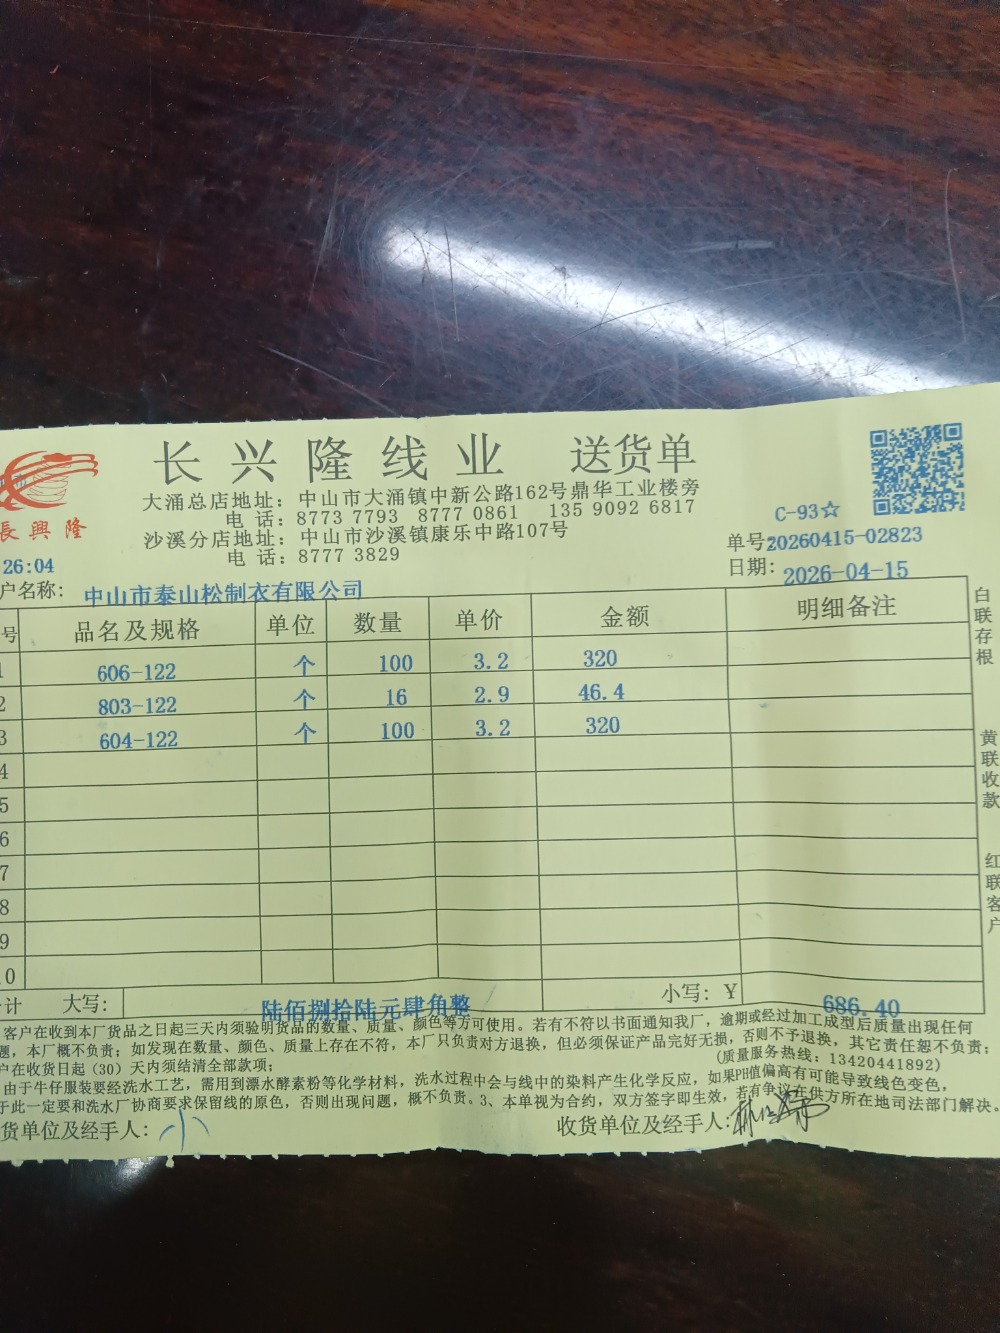 长兴隆线业 送货单
長興隆
大涌总店地址：中山市大涌镇中新公路162号鼎华工业楼旁
电 话：8773 7793 8777 0861 135 9092 6817
沙溪分店地址：中山市沙溪镇康乐中路107号
电 话：8777 3829
C-93☆
单号:20260415-02823
日期：2026-04-15
26:04
户名称：中山市泰山松制衣有限公司
号 品名及规格 单位 数量 单价 金额 明细备注
1 606-122 个 100 3.2 320
2 803-122 个 16 2.9 46.4
3 604-122 个 100 3.2 320
4
5
6
7
8
9
10
计 大写：陆佰捌拾陆元肆角整 小写：￥686.40
白联存根
黄联收款
红联客户
客户在收到本厂货品之日起三天内须验明货品的数量、质量、颜色等方可使用。若有不符以书面通知我厂，逾期或经过加工成型后质量出现任何
题，本厂概不负责；如发现在数量、颜色、质量上存在不符，本厂只负责对方退换，但必须保证产品完好无损，否则不予退换，其它责任恕不负责；
户在收货日起（30）天内须结清全部款项； （质量服务热线：13420441892）
由于牛仔服装要经洗水工艺，需用到漂水酵素粉等化学材料，洗水过程中会与线中的染料产生化学反应，如果PH值偏高有可能导致线色变色，
于此一定要和洗水厂协商要求保留线的原色，否则出现问题，概不负责。3、本单视为合约，双方签字即生效，若有争议在供方所在地司法部门解决。
货单位及经手人：小
收货单位及经手人：